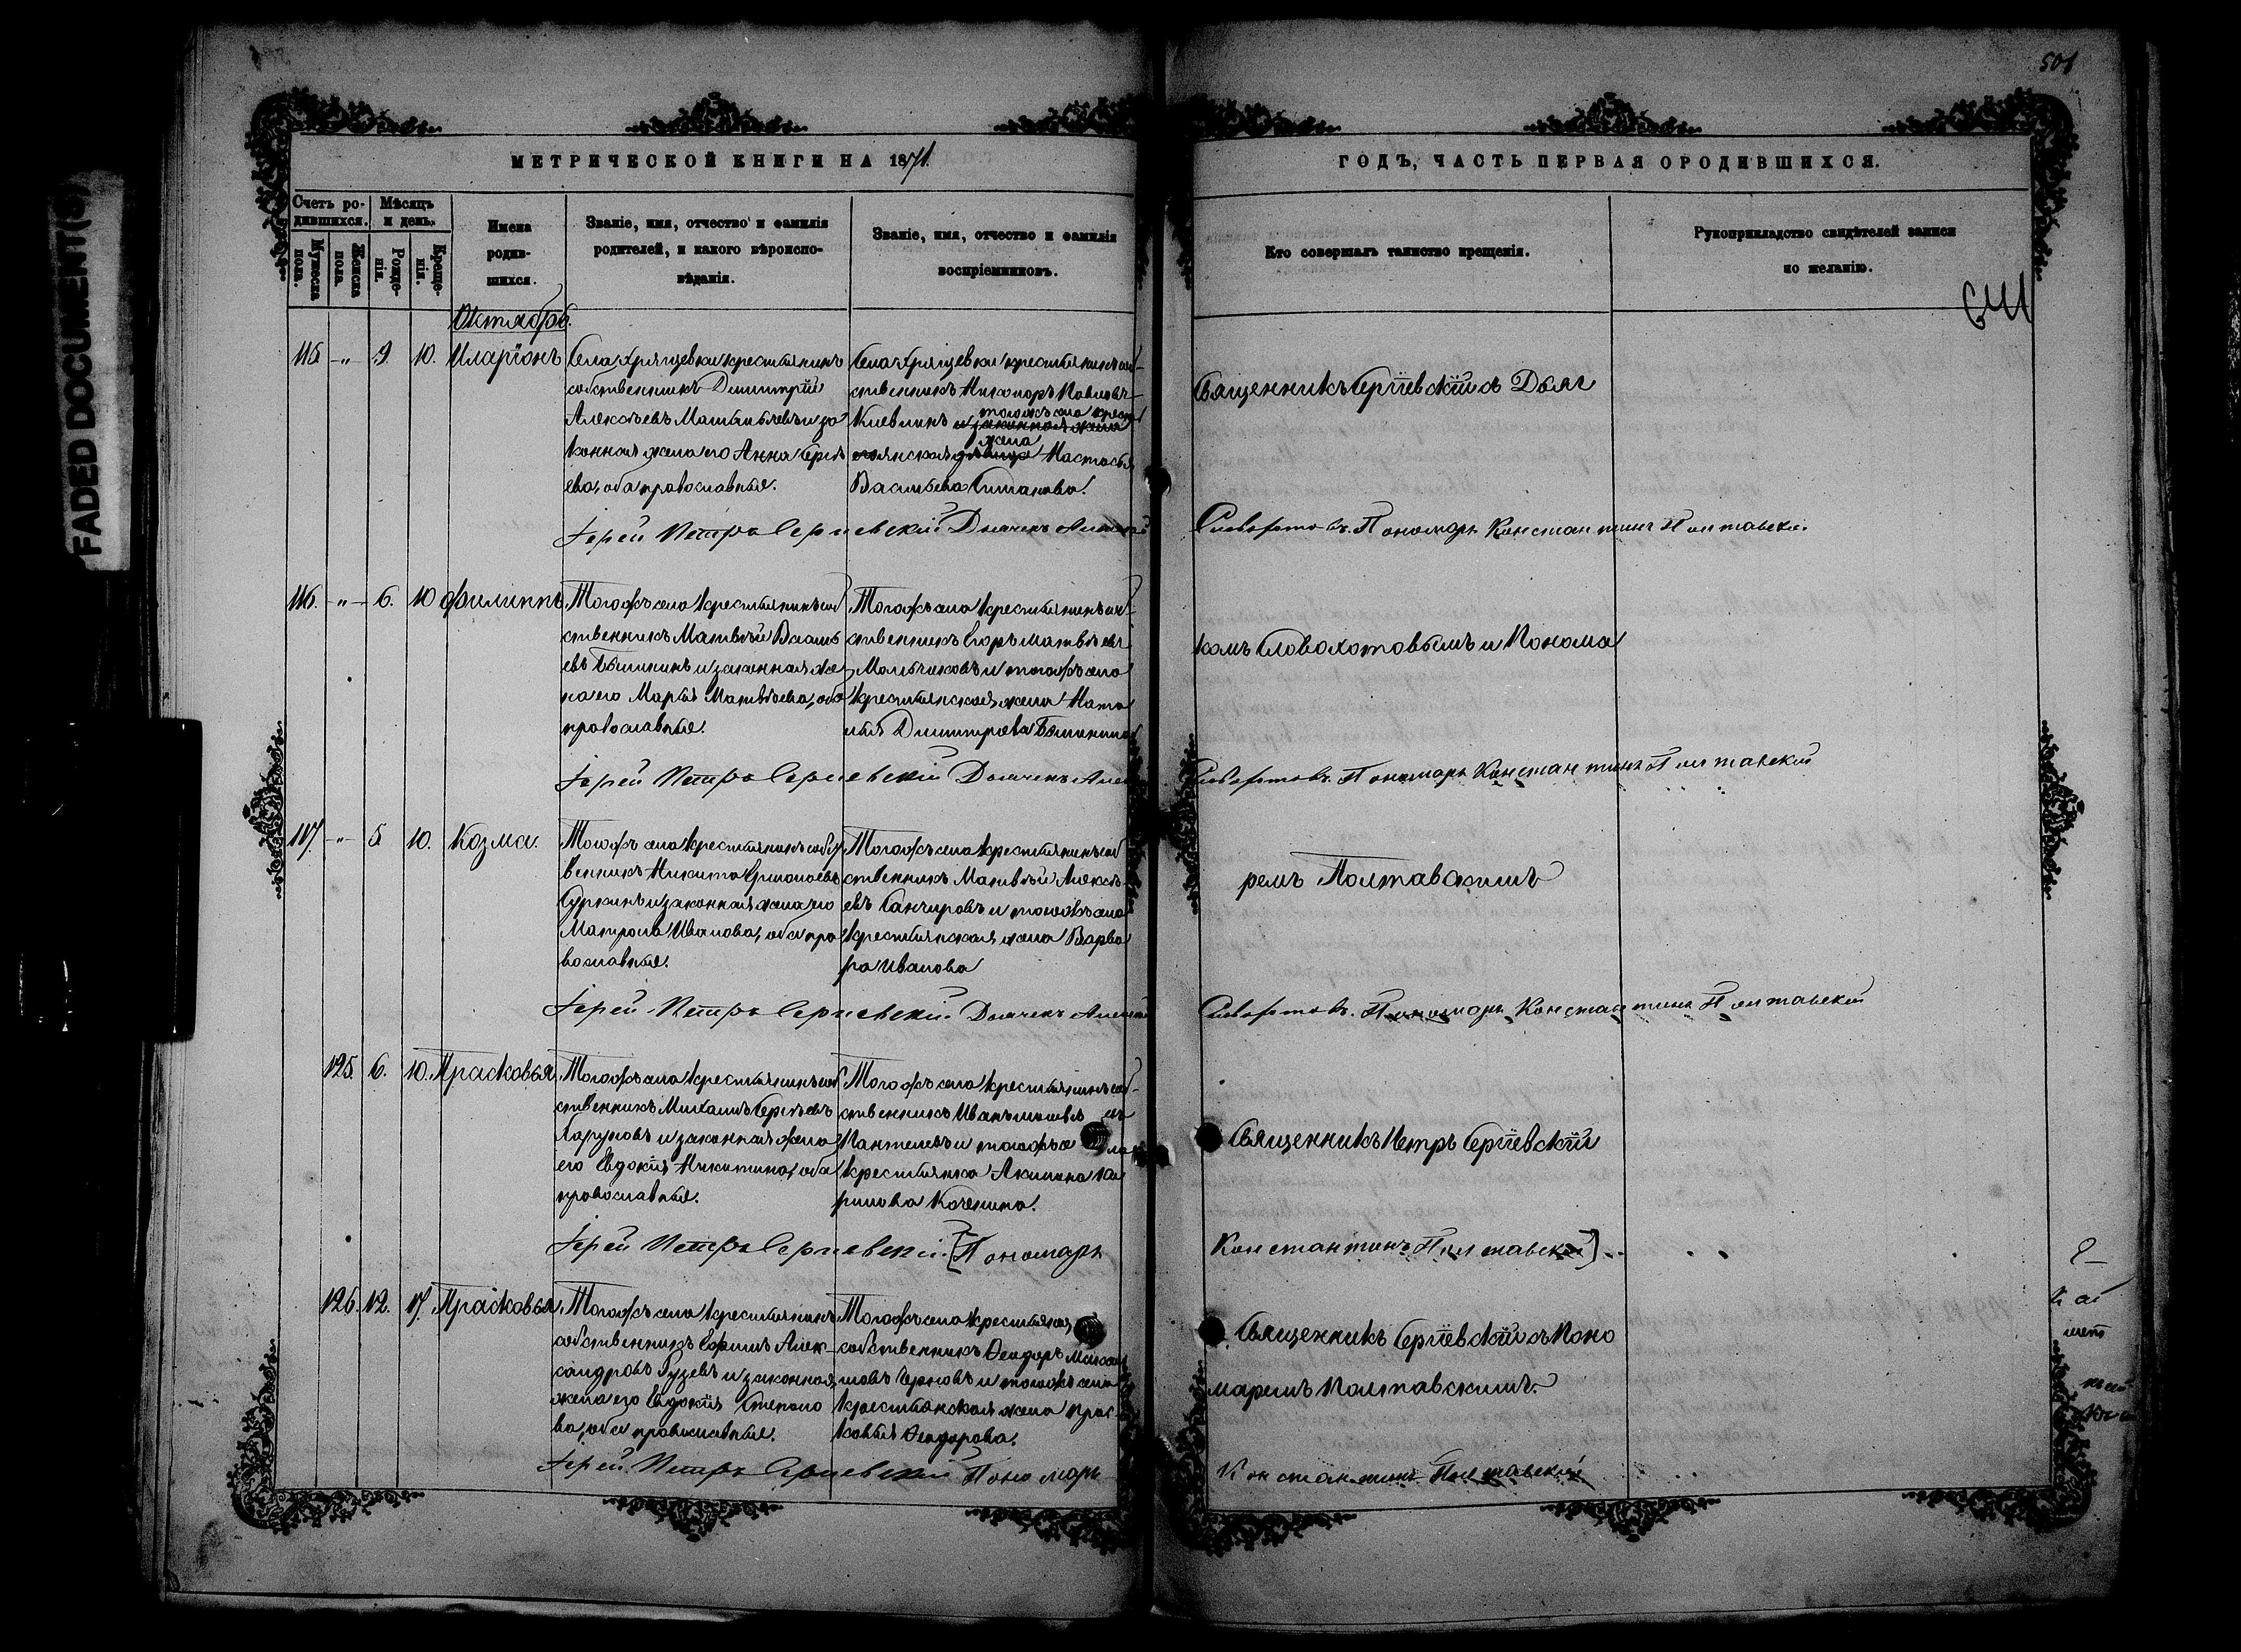 FADED DOCUMENT(S)
501
МЕТРИЧЕСКОЙ КНИГИ НА 1871
ГОДЪ, ЧАСТЬ ПЕРВАЯ О РОДИВШИХСЯ.
Счетъ ро-
дившихся.
Мужеска
пола.
Женска
пола.
Мѣсяцъ
и день.
Рожде-
нія.
Креще-
нія.
Имена
родив-
шихся.
Званіе, имя, отчество и фамилія
родителей, и какого вѣроиспо-
вѣданія.
Званіе, имя, отчество и фамилія
воспріемниковъ.
Кто совершалъ таинство крещенія.
Рукоприкладство свидѣтелей записи
по желанію.
Октябрь.
115 -„- 9. 10. Иларіонъ
Села Хрящевки крестьянинъ
собственникъ Димитрій
Алексѣевъ и за
конная жена его Анна Сергѣ
ева, оба православные.
Села Хрящевки крестьянинъ соб-
ственникъ Никаноръ Павловъ
тогожъ села крес
жена
Настасья
Васильева
Священникъ Сергіевскій съ Дьяч
Іерей Петръ Сергіевскій Дьячекъ
Пономарь Константинъ Полтавскій.
116. -„- 6. 10 Филиппъ
Тогожъ села крестьянинъ соб
ственникъ Матвѣй Василь
евъ и законная же
на его Марья Матвѣева, оба
православные.
Тогожъ села крестьянинъ соб-
ственникъ Егоръ Матвѣевъ
Мольчиковъ и тогожъ села
крестьянская жена Ната
лья Димитріева
комъ и Понома
Іерей Петръ Сергіевскій Дьячекъ
Пономарь Константинъ Полтавскій
117. -„- 5 10. Козма.
Тогожъ села крестьянинъ собст
венникъ Никита
Суркинъ и законная жена его
Матрона Иванова, оба пра
вославные.
Тогожъ села крестьянинъ соб
ственникъ Матвѣй Алексѣ
евъ и тогожъ села
крестьянская жена Варва
ра Иванова
ремъ Полтавскимъ
Іерей Петръ Сергіевскій Дьячекъ
Пономарь Константинъ Полтавскій
125. 6. 10. Прасковья
Тогожъ села крестьянинъ соб
ственникъ Михаилъ Сергѣевъ
и законная жена
его Евдокія Никитина, оба
православные.
Тогожъ села крестьянинъ соб-
ственникъ Иванъ
Пантелеевъ и тогожъ села
крестьянка Акилина
Священникъ Петръ Сергіевскій
Іерей Петръ Сергіевскій. [Пономарь
Константинъ Полтавскій]
126. 12. 17. Прасковья
Тогожъ села крестьянинъ
собственникъ Ефимъ Алек-
сандровъ Гузевъ и законная
жена его Евдокія Степано
ва, оба православные.
Тогожъ села крестьянинъ
собственникъ Ѳеодоръ
Черновъ и тогожъ села
крестьянская жена Прас-
ковья Ѳеодорова.
Священникъ Сергіевскій съ Поно
маремъ Полтавскимъ.
Іерей Петръ Сергіевскій Пономарь
Константинъ Полтавскій